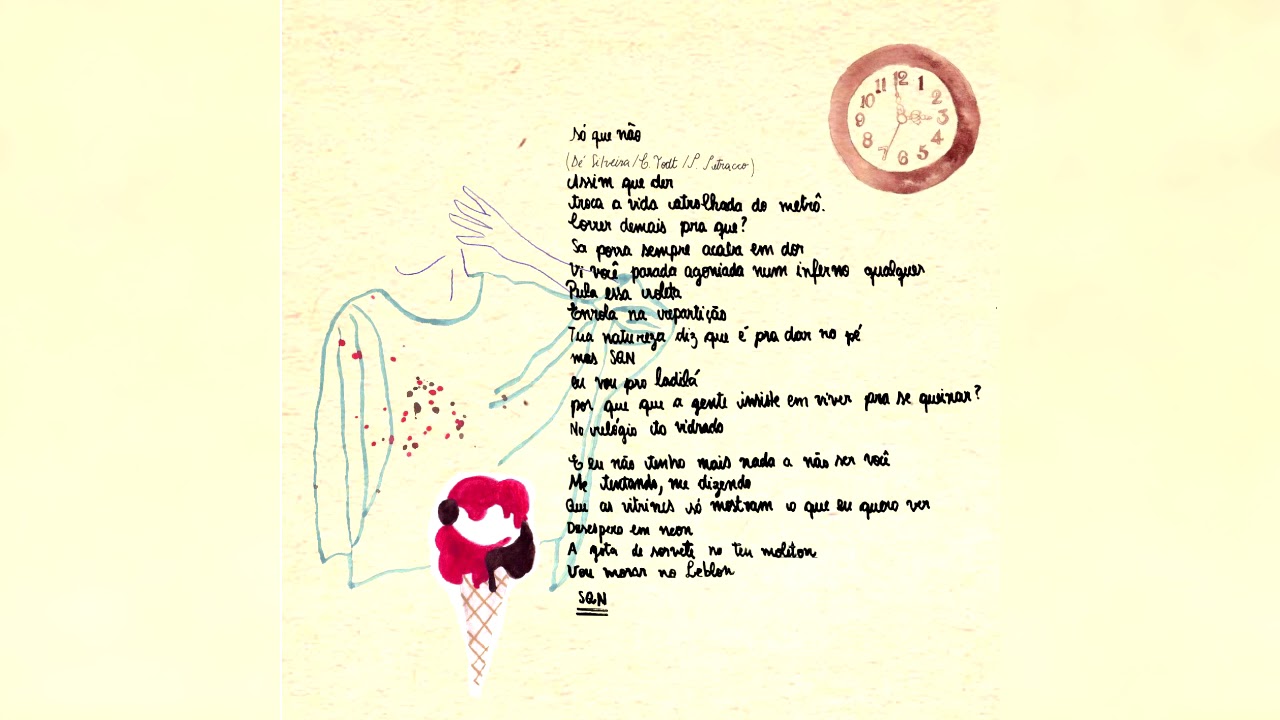 11 12 1
10 2
9 3
8 4
7 6 5
Só que não
(Dé Silveira/C. Yodt/P. Petracco)
Assim que der
troca a vida atrolhada do metrô.
Correr demais pra que?
Sa porra sempre acaba em dor
Vi você parada agoniada num inferno qualquer
Pula essa roleta
Enrola na repartição
Tua natureza diz que é pra dar no pé
mas SQN
eu vou pro ladilá
por que que a gente insiste em viver pra se queixar?
No relógio tô vidrado
E eu não tenho mais nada a não ser você
Me tentando, me dizendo
Que as vitrines só mostram o que eu quero ver
Desespero em neon
A gota de sorvete no teu moleton
Vou morar no Leblon
SQN